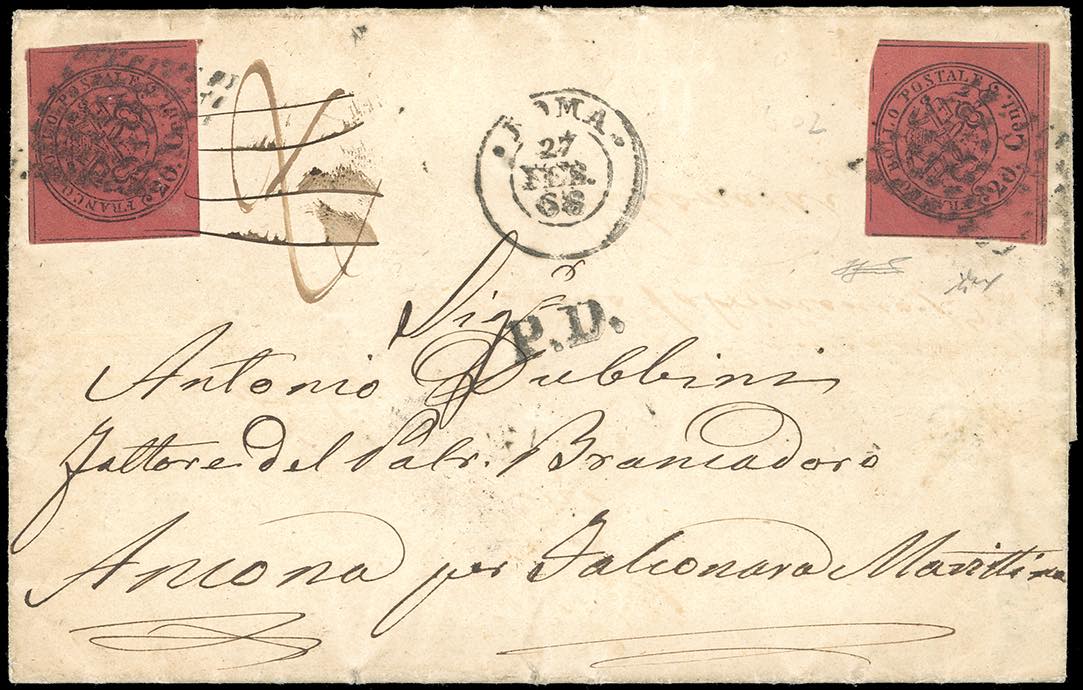 FRANCO BOLLO POSTALE Cent. 20.
FRANCO BOLLO POSTALE Cent. 20.
ROMA
27
FEB.
68
P.D.
Sigr
Antonio Dubbini
Fattore del Palr. Brancadoro
Ancona per Falconara Marittima